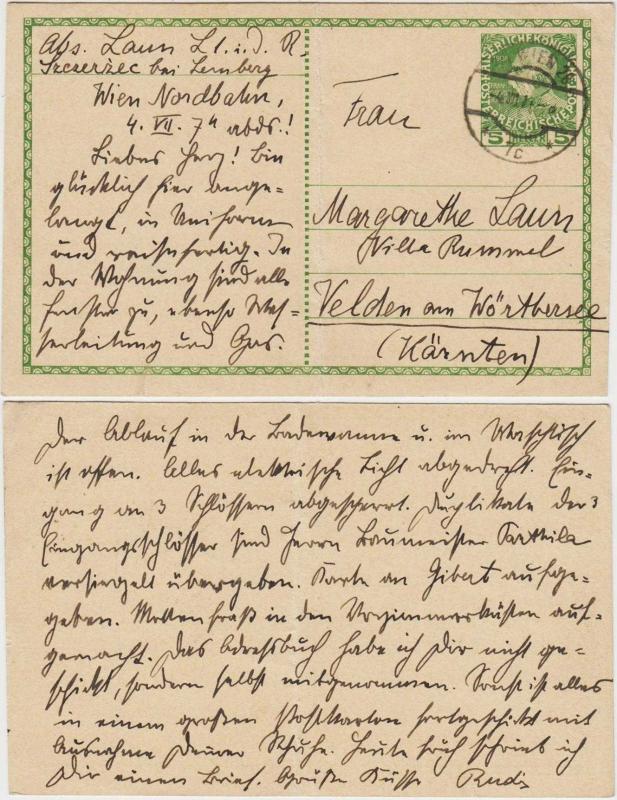 Abs. Laun Lt. i. d. R.
Szczerzec bei Lemberg
Wien Nordbahn,
4. VII. 7h abds.!
Liebes Herz! Bin
glücklich hier ange-
langt, in Uniform
und reisefertig. In
der Wohnung sind alle
Fenster zu, ebenso Was-
serleitung und Gas.
KAISERLICHE KÖNIGL
ÖSTERREICHISCHE POST
5 5
WIEN
Frau
Margarethe Laun
Villa Rummel
Velden am Wörthersee
(Kärnten)
Der Ablauf in der Badewanne u. im Waschtisch
ist offen. Alles elektrische Licht abgedreht. Ein-
gang an 3 Schlössern abgesperrt. Duplikate der 3
Eingangsschlösser sind Herrn Baumeister
versiegelt übergeben. Karte an Gibert aufge-
geben. Mottenfraß in den Vorzimmerkästen auf-
gemacht. Das Adressbuch habe ich Dir nicht ge-
schickt, sondern selbst mitgenommen. Sonst ist alles
in einem großen Postkarton fortgeschickt mit
Ausnahme Deiner Schuhe. Heute früh schrieb ich
Dir einen Brief. Grüße Küsse Rudi